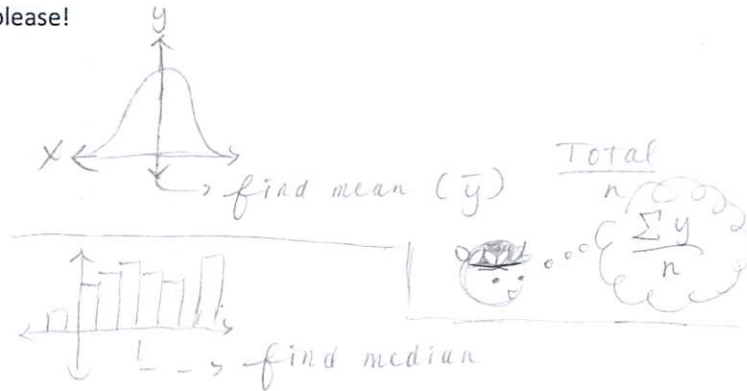 please!
y
X
find mean (ȳ)
Total
n
Σy
n
find median